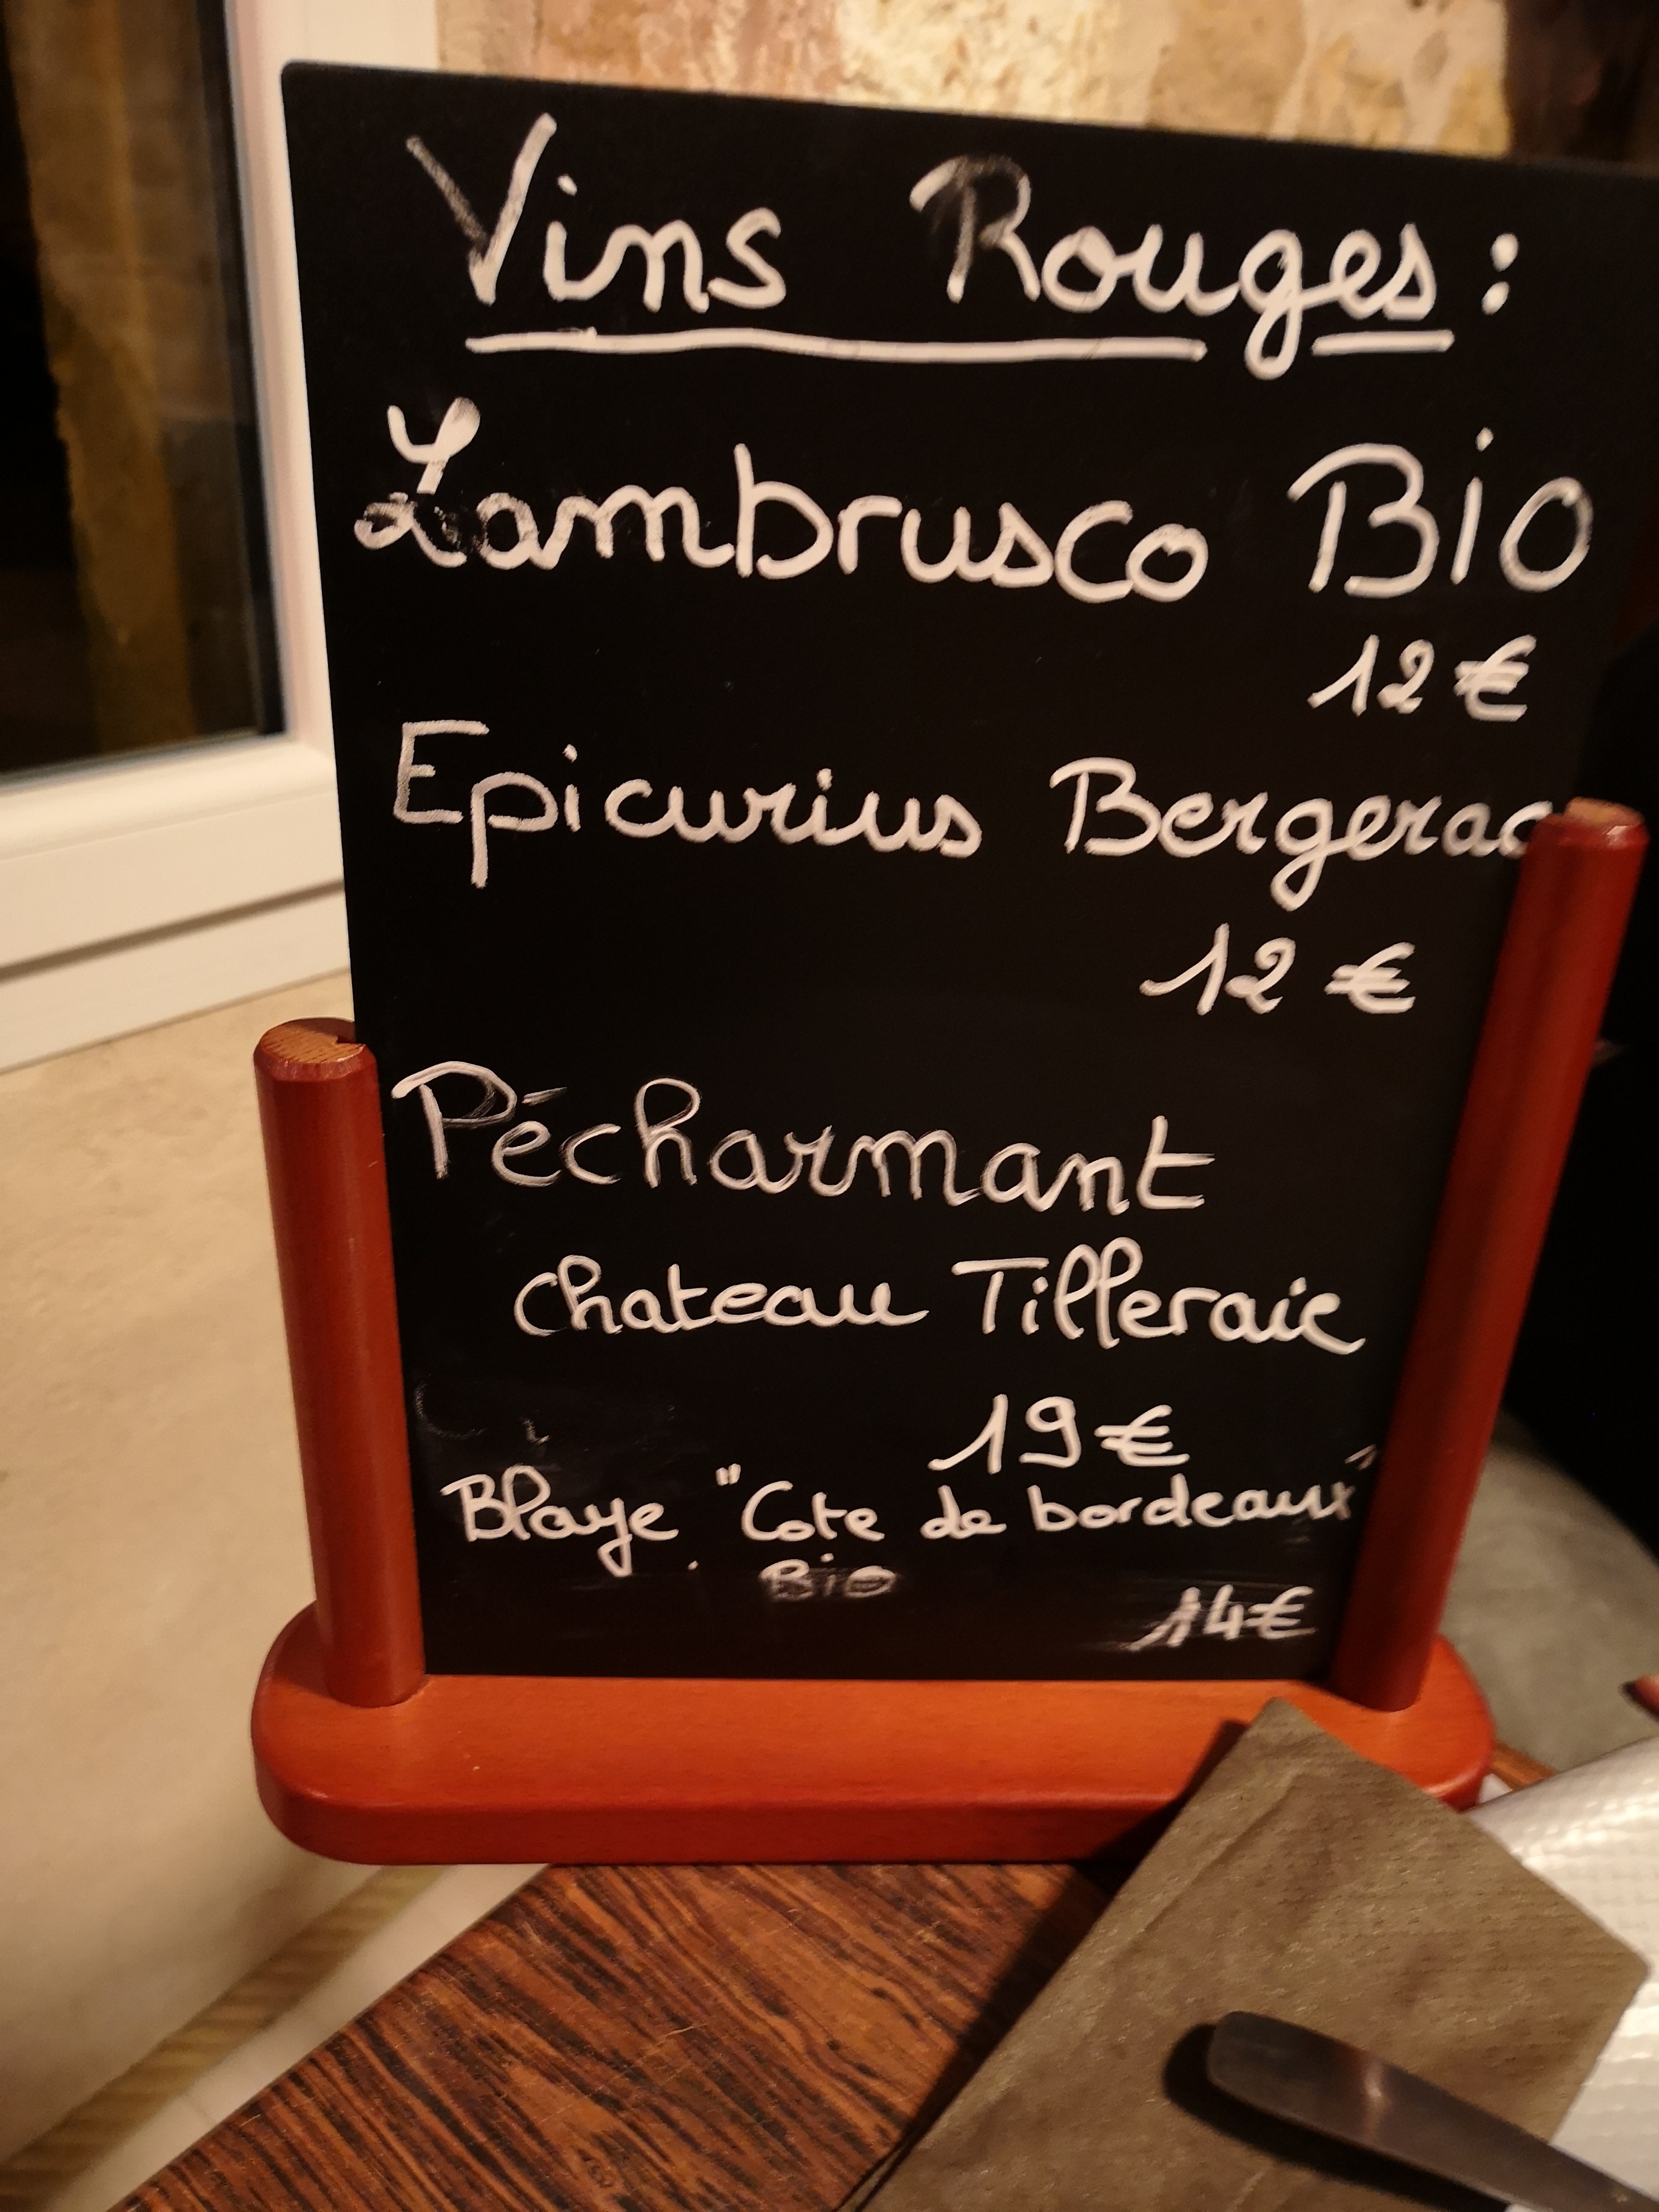 Vins Rouges :
Lambrusco Bio
12 €
Epicurius Bergerac
12 €
Pécharmant
Chateau Tilleraie
19 €
Blaye "Cote de bordeaux"
Bio
14€